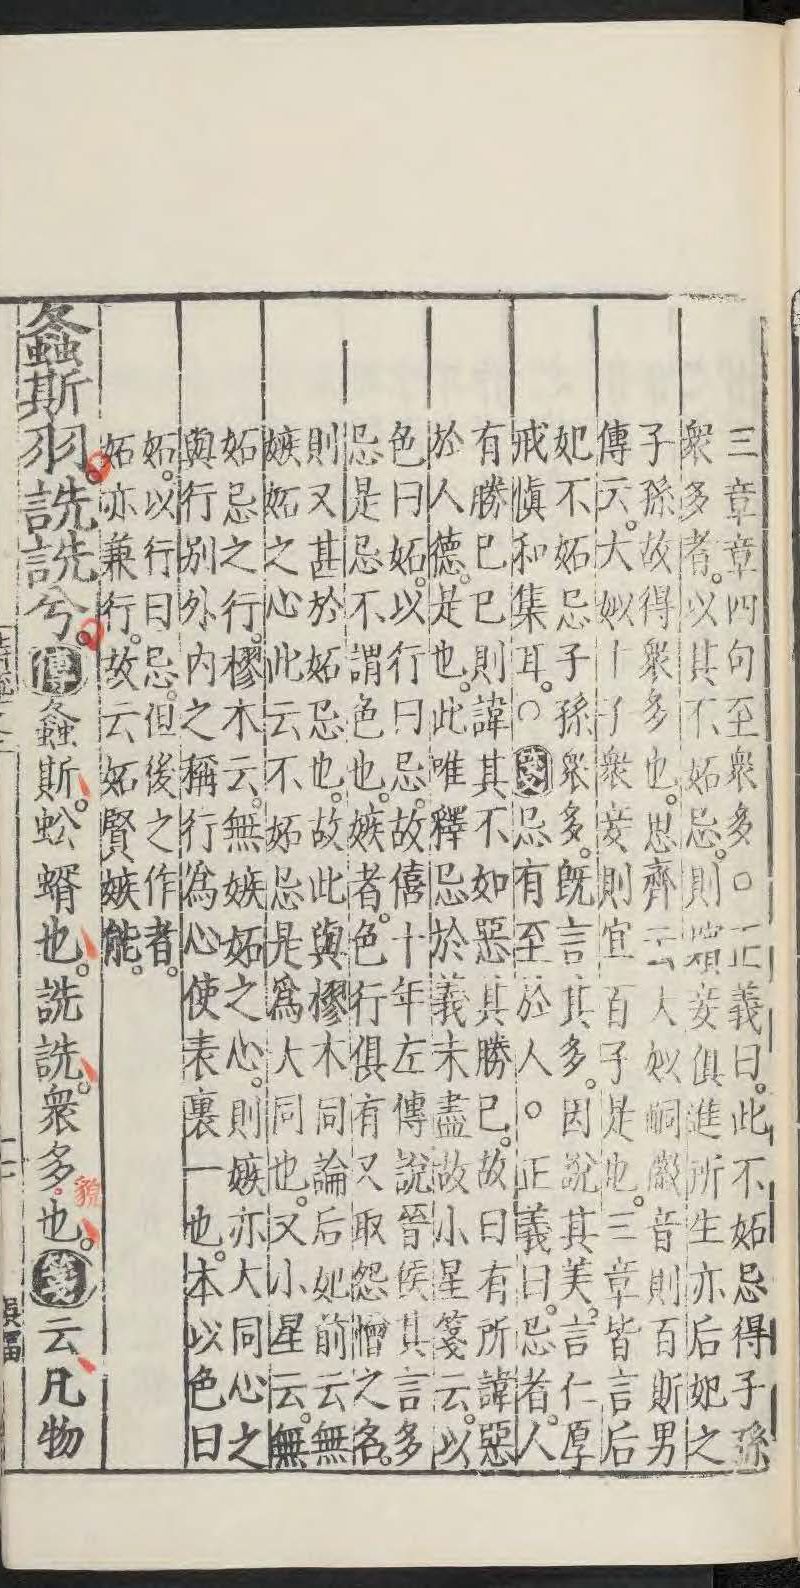 三章章四句至衆多○正義曰此不妬忌得子孫
衆多者以其不妬忌則嬪妾俱進所生亦后妃之
子孫故得衆多也思齊云大姒嗣徽音則百斯男
傳云大姒十子衆妾則宜百子是也三章皆言后
妃不妬忌子孫衆多既言其多因說其美言仁厚
戒愼和集耳○箋忌有至於人○正義曰忌者人
有勝己己則諱其不如惡其勝己故曰有所諱惡
於人德是也此唯釋忌於義未盡故小星箋云以
色曰妬以行曰忌故僖十年左傳說晉侯其言多
忌是忌不謂色也嫉者色行俱有又取怨憎之名
則又甚於妬忌也故此與樛木同論后妃前云無
嫉妬之心此云不妬忌是爲大同也又小星云無
妬忌之行樛木云無嫉妬之心則嫉亦大同心之
與行別外內之稱行爲心使表裏一也本以色曰
妬以行曰忌但後之作者
妬亦兼行故云妬賢嫉能
螽斯羽詵詵兮傳螽斯蚣蝑也詵詵衆多也箋云凡物
貌